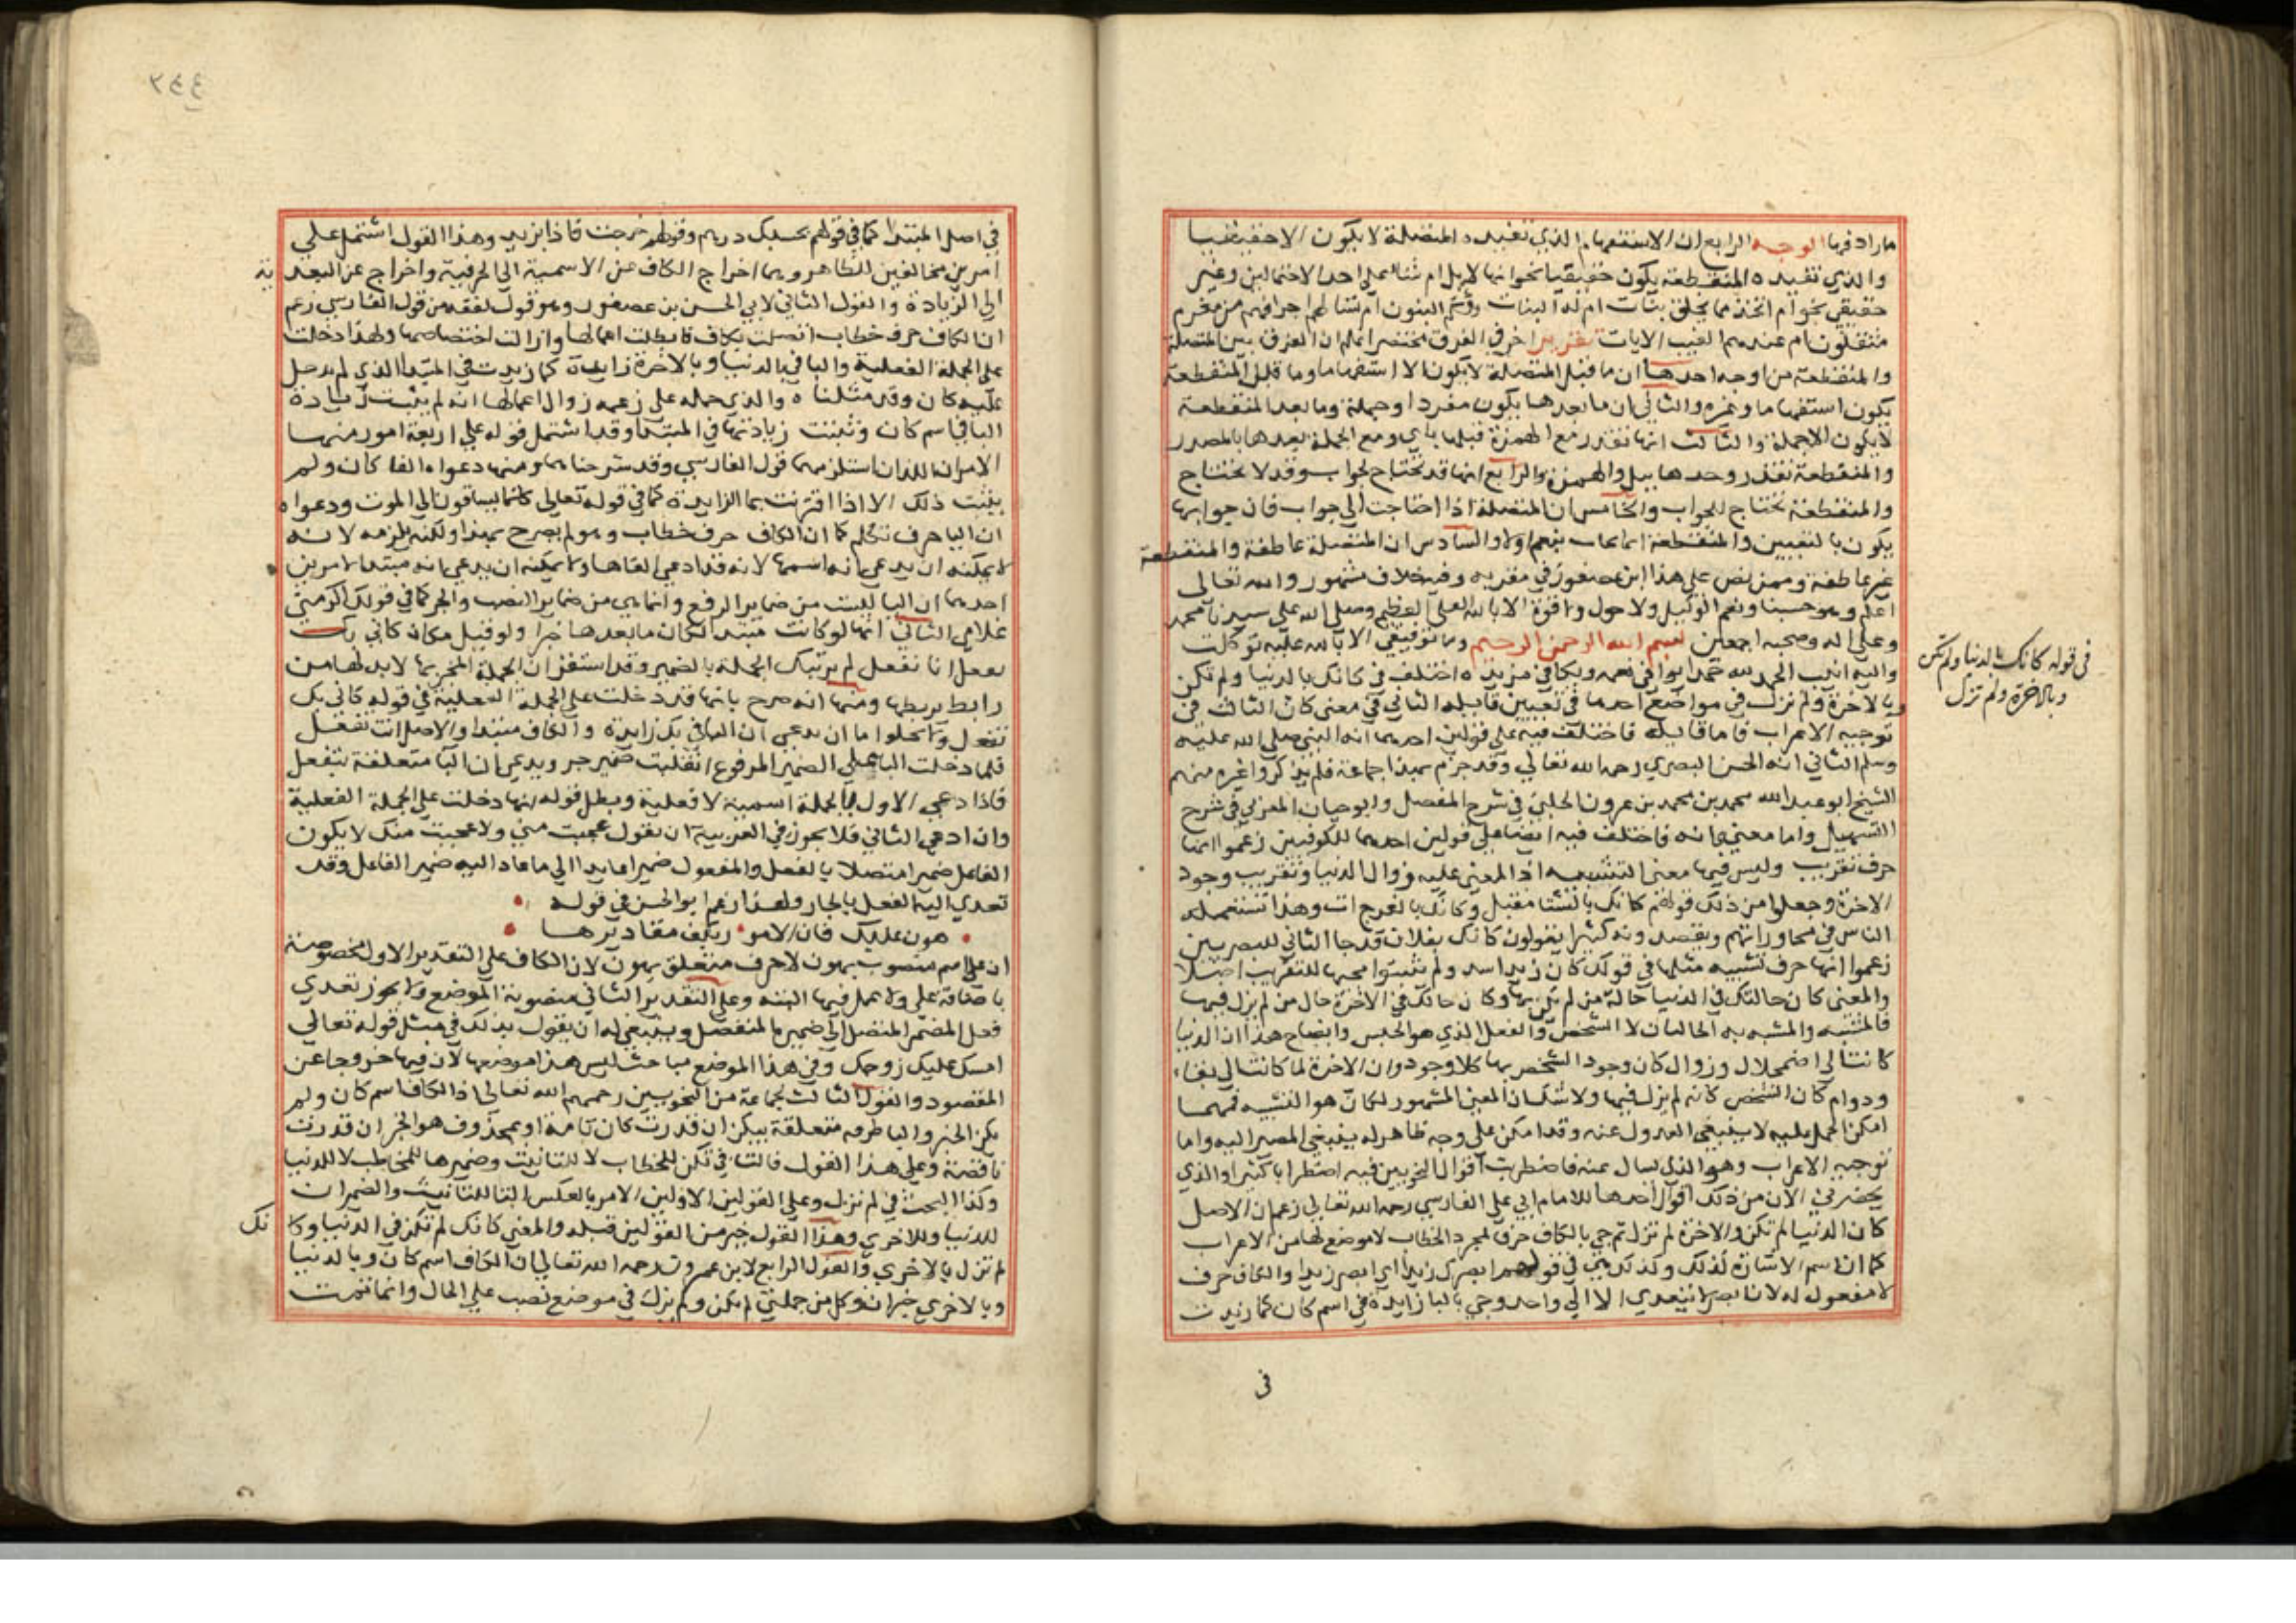 ما رادفها الوجه الرابع ان الاستفهام الذي تفيده المتصلة لا يكون الا حقيقيا
والذي تفيده المنقطعة يكون حقيقيا نحو انها لابل ام شاء علي احد الاحتمالين وغير
حقيقي نحو ام اتخذ مما يخلق بنات ام له البنات ولكم البنون ام تسالهم اجرا فهم من مغرم
مثقلون ام عندهم الغيب الايات تقرير اخر في الفرق مختصر اعلم ان الفرق بين المتصلة
والمنقطعة من اوجه احدها ان ما قبل المتصلة لا يكون الا استفهاما وما قبل المنقطعة
يكون استفهاما وغيره والثاني ان ما بعدها يكون مفردا وجملة وما بعد المنقطعة
لا يكون الا جملة والثالث انها تقدر مع الهمزة قبلها باي ومع الجملة بعدها بالمصدر
والمنقطعة تقدر وحدها ببل والهمزة والرابع انها قد تحتاج لجواب وقد لا تحتاج
والمنقطعة تحتاج للجواب والخامس ان المتصلة اذا احتاجت الي جواب فان جوابها
يكون بالتعيين والمنقطعة انما تجاب بنعم اولا والسادس ان المتصلة عاطفة والمنقطعة
غير عاطفة وممن نص علي هذا ابن عصفور في مقربه وفيه خلاف مشهور والله تعالي
اعلم وهو حسبنا ونعم الوكيل ولا حول ولا قوة الا بالله العلي العظيم وصلي الله علي سيدنا محمد
وعلي اله وصحبه اجمعين بسم الله الرحمن الرحيم وما توفيقي الا بالله عليه توكلت
واليه انيب الحمد لله حمدا يوافي نعمه ويكافي مزيده اختلف في كانك بالدنيا ولم تكن
وبالاخرة ولم تزل في مواضع احدها في تعيين قايله الثاني في معني كان الثالث في
توجيه الاعراب فاما قايله فاختلف فيه علي قولين احدهما انه النبي صلي الله عليه
وسلم الثاني انه الحسن البصري رحمه الله تعالي وقد جزم بهذا جماعة فلم يذكروا غيره منهم
الشيخ ابو عبد الله محمد بن محمد بن عمرون الحلبي في شرح المفصل وابو حيان المغربي في شرح
التسهيل واما معني كانه فاختلف فيه ايضا علي قولين احدهما للكوفيين زعموا انها
حرف تقريب وليس فيها معني التشبيه اذ المعني عليه زوال الدنيا وتقريب وجود
الاخرة وجعلوا من ذلك قولهم كانك بالشتا مقبل وكانك بالفرج ات وهذا تستعمله
الناس في محاوراتهم ويقصدونه كثيرا يقولون كانك بفلان قد جا الثاني للبصريين
زعموا انها حرف تشبيه مثلها في قولك كان زيدا اسد ولم يثبتوا مجيها للتقريب اصلا
والمعني كان حالتك في الدنيا حالة من لم يكن بها وكان حالك في الاخرة حال من لم يزل فيها
فالمشبه والمشبه به الحالتان لا الشخص والفعل الذي هو الجنس وايضاح هذا ان الدنيا
كانت الي اضمحلال وزوال كان وجود الشخص بها كلا وجود وان الاخرة لما كانت الي بقاء
ودوام كان الشخص كانه لم يزل فيها ولا شك ان المعني المشهور لكان هو التشبيه فمهما
امكن الحمل عليه لا ينبغي العدول عنه وقد امكن علي وجه ظاهر له ينبغي المصير اليه واما
توجيه الاعراب وهو الذي سال عنه فاضطربت اقوال النحويين فيه اضطرابا كثيرا والذي
يحضرني الان من ذلك اقوال احدها للامام ابي علي الفارسي رحمه الله تعالي زعم ان الاصل
كان الدنيا لم تكن والاخرة لم تزل ثم جي بالكاف حرف لمجرد الخطاب لا موضع لها من الاعراب
كما ان اسم الاشارة لذلك وكذلك هي في قولهم ابصرك زيدا اي ابصر زيدا والكاف حرف
لا مفعول له لان ابصر لا يتعدي الا الي واحد وجي بالبا زايدة في اسم كان كما زيدت
في
في قوله كانك بالدنيا ولم تكن
وبالاخرة ولم تزل
٣٤٤
في اصل المبتدا كما في قولهم بحسبك درهم وقولهم خرجت فاذا بزيد وهذا القول اشتمل علي
امرين مخالفين للظاهر وهما اخراج الكاف عن الاسمية الي الحرفية واخراج عن التعد ية
الي الزيادة والقول الثاني لابي الحسن بن عصفور وهو قول لفقه من قول الفارسي زعم
ان الكاف حرف خطاب اتصلت بكاف فابطلت اعمالها وازالت اختصاصها ولهذا دخلت
علي الجملة الفعلية والبا في بالدنيا وبالاخرة زايدة كما زيدت في المبتدا الذي لم يدخل
عليه كان وقد مثلناه والذي حمله علي زعمه زوال اعمالها انه لم يثبت زيادة
البا في اسم كان وثبتت زيادتها في المبتدا وقد اشتمل قوله علي اربعة امور منها
الامران اللذان استلزمهما قول الفارسي وقد شرحناهما ومنها دعواه الغا كان ولم
يثبت ذلك الا اذا اقترنت بما الزايدة كما في قوله تعالي كانما يساقون الي الموت ودعواه
ان اليا حرف تكلم كما ان الكاف حرف خطاب وهو لم يصرح بهذا ولكنه يلزمه لانه
لا يمكنه ان يدعي انه اسمها لانه قد ادعي الغاها ولا يمكنه ان يدعي انه مبتدا لامرين
احدهما ان اليا ليست من ضماير الرفع وانما هي من ضماير النصب والجر كما في قولك اكرمني
غلامي الثاني انها لو كانت مبتدا لكان ما بعدها خبرا ولو قيل مكان كاني بك
تفعل انا تفعل لم يرتبط الجملة بالضمير وقد استقر ان الجملة المخبر بها لا بد لها من
رابط يربطها ومنها انه صرح بانها قد دخلت علي الجملة الفعلية في قوله كاني بك
تفعل ولا يخلوا ما ان يدعي ان البا في بك زايدة والكاف مبتدا والاصل انت تفعل
فلما دخلت البا علي الضمير المرفوع انقلبت ضمير جر ويدعي ان البا متعلقة بتفعل
فاذا دعي الاول فالجملة اسمية لا فعلية وبطل قوله انها دخلت علي الجملة الفعلية
وان ادعي الثاني فلا يجوز في العربية ان يقول عجبت مني ولا عجبت منك لا يكون
الفاعل ضميرا متصلا بالفعل والمفعول ضميرا عايدا الي ما عاد اليه ضمير الفاعل وقد
تعدي اليه الفعل بالجار ولهذا زعم ابو الحسن في قوله
هون عليك فان الامو ر بكف مقاديرها
ان علي اسم منصوب بهون لا حرف متعلق بهون لان الكاف علي التقدير الاول مخصوصة
باضافة علي ولا عمل فيها البتة وعلي التقدير الثاني منصوبة الموضع ولا يجوز تعدي
فعل المضمر المتصل الي ضميره المنفصل وينبغي له ان يقول بذلك في مثل قوله تعالي
امسك عليك زوجك وفي هذا الموضع مباحث ليس هذا موضعها لان فيها خروجا عن
المقصود والقول الثالث لجماعة من النحويين رحمهم الله تعالي اذ الكاف اسم كان ولم
يكن الخبر والبا ظرفه متعلقة بيكن ان قدرت كان تامة او بمحذوف هو الخبر ان قدرت
ناقصة وعلي هذا القول فالتا في تكن للخطاب لا للتانيث وضميرها للمخاطب لا للدنيا
وكذا البحث في لم تزل وعلي القولين الاولين الامر بالعكس التا للتانيث والضميران
للدنيا وللاخري وهذا القول خير من القولين قبله والمعني كانك لم تكن في الدنيا وكا نك
لم تزل بالاخري والقول الرابع لابن عمرون رحمه الله تعالي ان الكاف اسم كان وبالدنيا
وبالاخري خبران وكل من جملتي لم يكن ولم يزل في موضع نصب علي الحال وانما تمت